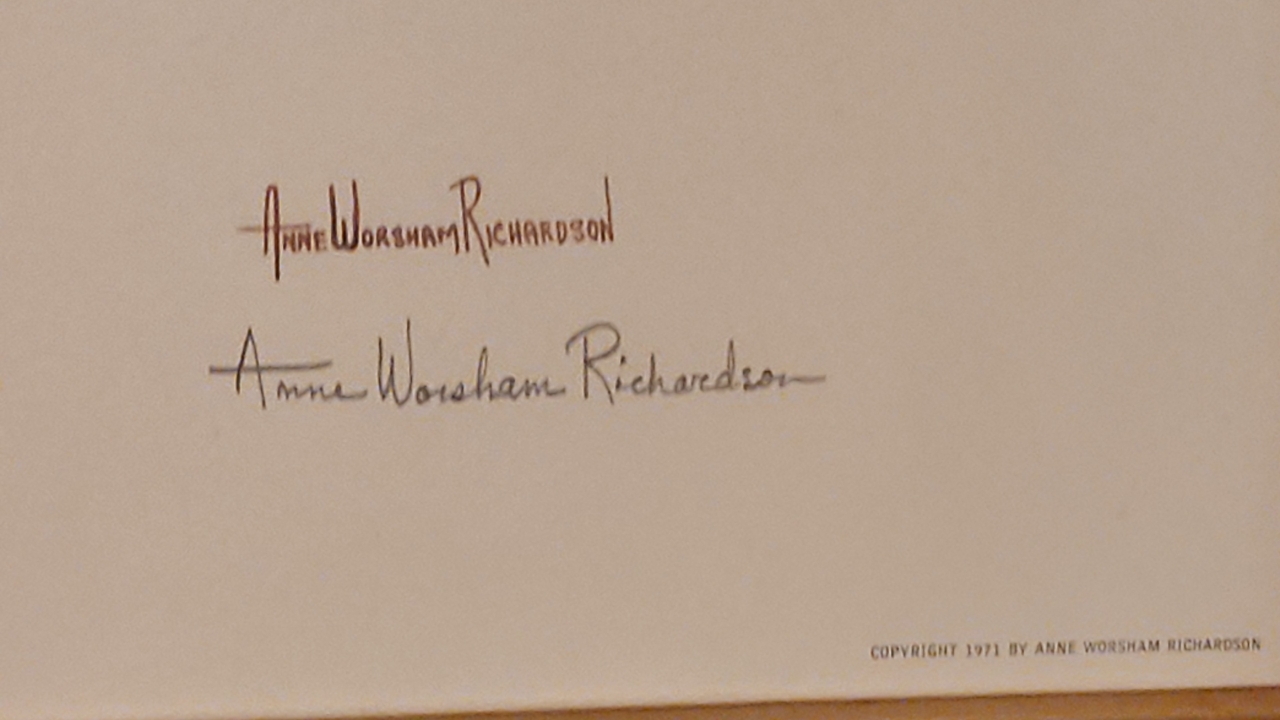 Anne Worsham Richardson
Anne Worsham Richardson
COPYRIGHT 1971 BY ANNE WORSHAM RICHARDSON